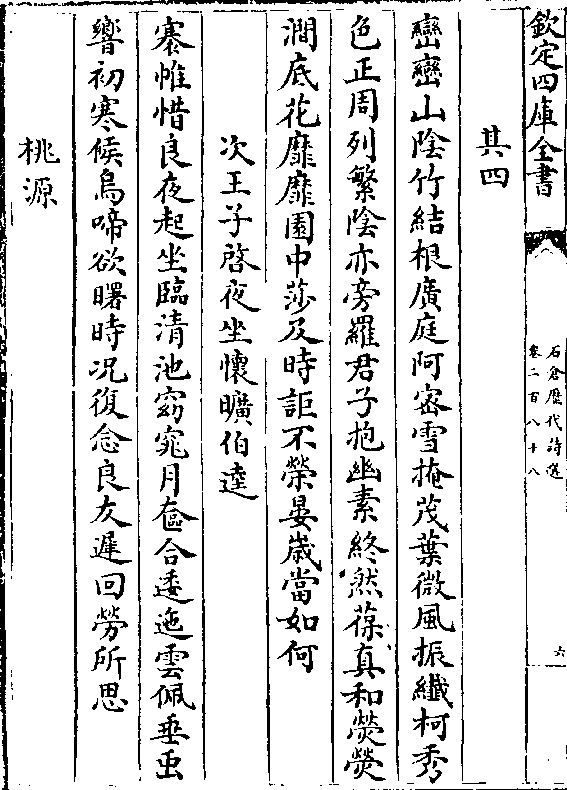 欽定四庫全書
石倉歷代詩選
卷二百八十八
六
其四
巒巒山陰竹結根廣庭阿密雪掩茂葉微風振纖柯秀
色正周列繁陰亦旁羅君子抱幽素終然葆真和熒熒
澗底花靡靡園中莎及時詎不榮晏歲當如何
次王子啓夜坐懷曠伯逵
褰帷惜良夜起坐臨清池窈窕月奩合逶迤雲佩垂虫
響初寒候烏啼欲曙時况復念良友遲回勞所思
桃源